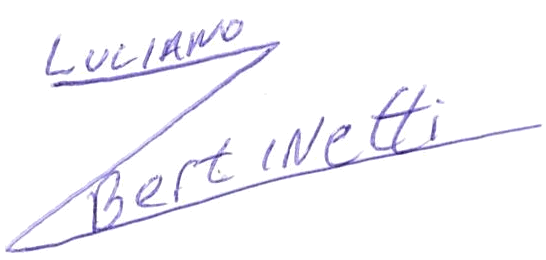 LUCIANO
BertiNetti